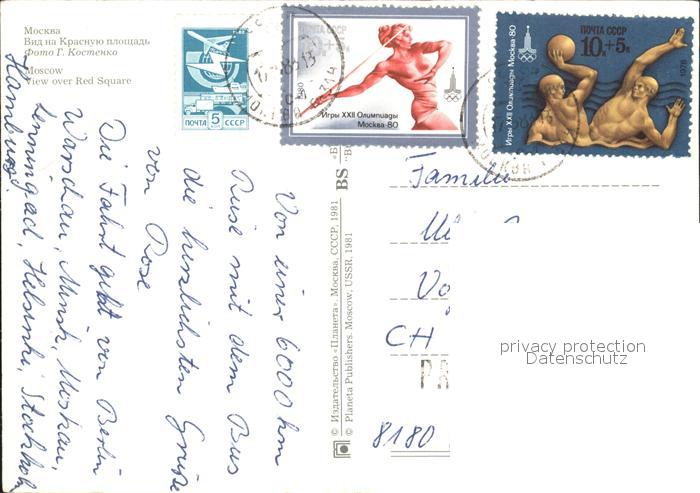 Москва
Вид на Красную площадь
Фото Г. Костенко
Moscow
View over Red Square
ПОЧТА 5 СССР
ПОЧТА СССР
10+5к
1980
Игры XXII Олимпиады
Москва-80
ПОЧТА СССР
10+5к
1978
Игры XXII Олимпиады Москва-80
Von einer 6000 km
Reise mit dem Bus
die herzlichsten Grüße
von Rose
Die Fahrt geht von Berlin
Warschau, Minsk, Moskau,
Leningrad, Helsinki, Stockholm
Hamburg
© Издательство «Планета». Москва, СССР, 1981
© Planeta Publishers. Moscow, USSR, 1981
BS
Familie
CH
8180
privacy protection
Datenschutz